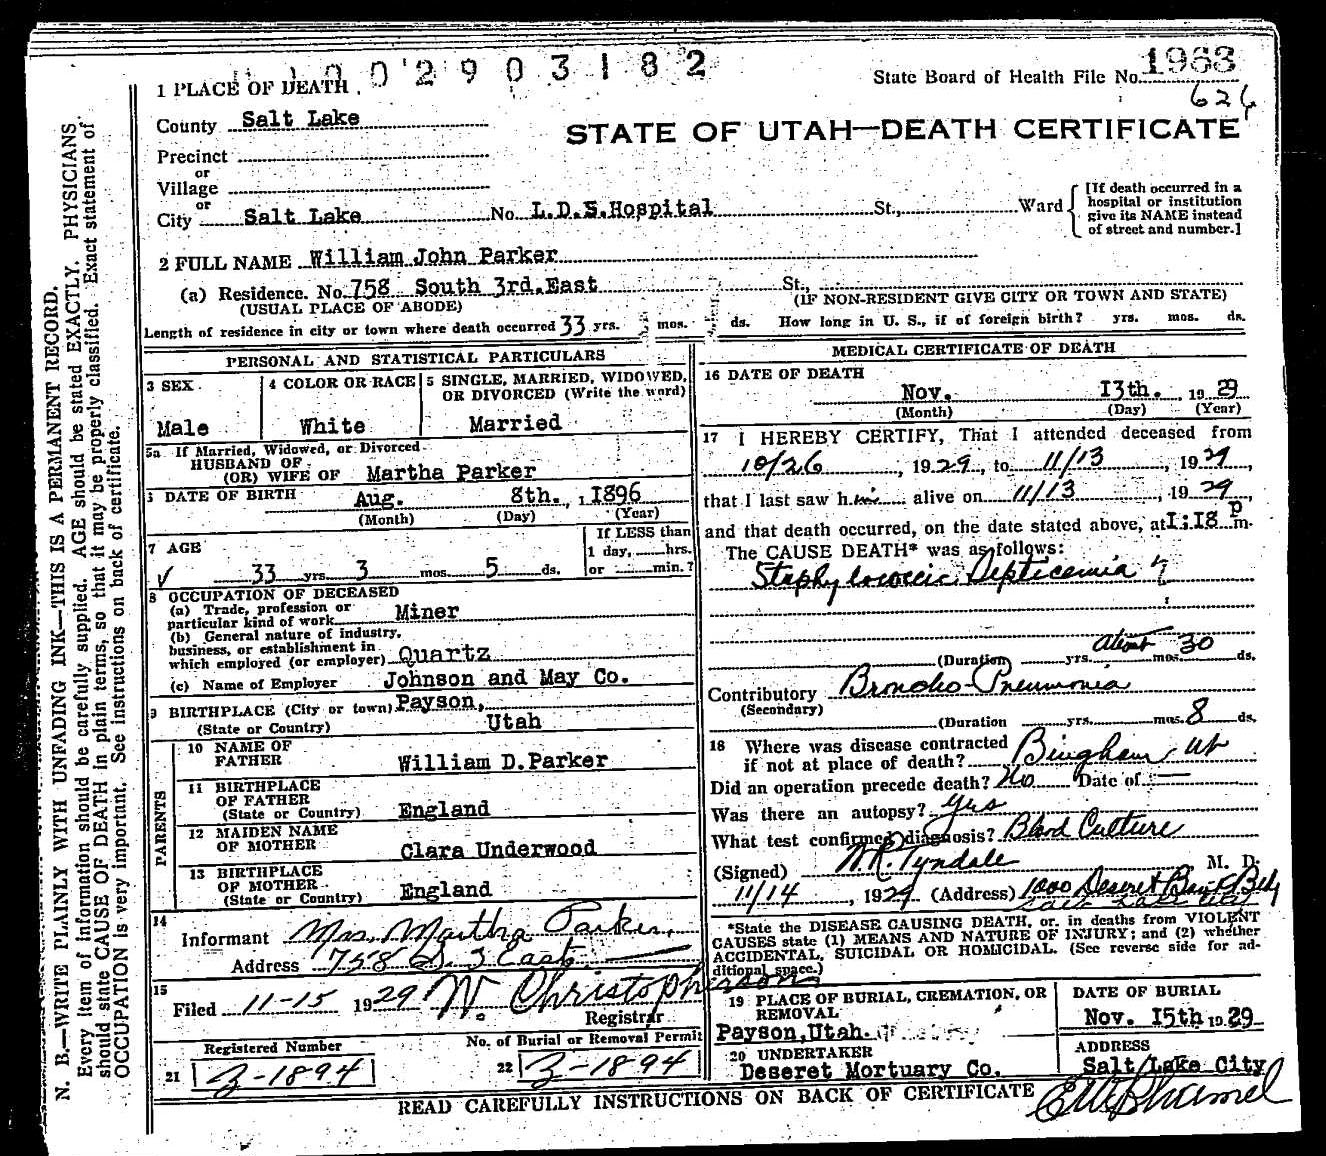 002903182
State Board of Health File No. 1963
626
1 PLACE OF DEATH
County Salt Lake
STATE OF UTAH—DEATH CERTIFICATE
Precinct
or
Village
or
City Salt Lake No. L.D.S.Hospital St., Ward
[If death occurred in a hospital or institution give its NAME instead of street and number.]
2 FULL NAME William John Parker
(a) Residence. No. 758 South 3rd.East St.,
(USUAL PLACE OF ABODE) (IF NON-RESIDENT GIVE CITY OR TOWN AND STATE)
Length of residence in city or town where death occurred 33 yrs. mos. ds. How long in U. S., if of foreign birth? yrs. mos. ds.
PERSONAL AND STATISTICAL PARTICULARS
3 SEX
Male
4 COLOR OR RACE
White
5 SINGLE, MARRIED, WIDOWED, OR DIVORCED (Write the word)
Married
5a If Married, Widowed, or Divorced
HUSBAND OF
(OR) WIFE OF Martha Parker
DATE OF BIRTH Aug. 8th., 1896
(Month) (Day) (Year)
7 AGE
33 yrs. 3 mos. 5 ds.
If LESS than
1 day, hrs.
or min.?
8 OCCUPATION OF DECEASED
(a) Trade, profession or
particular kind of work Miner
(b) General nature of industry,
business, or establishment in
which employed (or employer) Quartz
(c) Name of Employer Johnson and May Co.
9 BIRTHPLACE (City or town) Payson,
(State or Country) Utah
PARENTS
10 NAME OF
FATHER William D.Parker
11 BIRTHPLACE
OF FATHER
(State or Country) England
12 MAIDEN NAME
OF MOTHER Clara Underwood
13 BIRTHPLACE
OF MOTHER
(State or Country) England
14
Informant Mrs. Martha Parker,
Address 758 S. 3 East.
15
Filed 11-15 1929 W. Christopherson
Registrar
Registered Number
21 3-1894
No. of Burial or Removal Permit
22 3-1894
MEDICAL CERTIFICATE OF DEATH
16 DATE OF DEATH
Nov. 13th. 1929
(Month) (Day) (Year)
17 I HEREBY CERTIFY, That I attended deceased from
10/26, 1929, to 11/13, 1929,
that I last saw him alive on 11/13, 1929,
and that death occurred, on the date stated above, at 1:18 P m.
The CAUSE DEATH* was as follows:
Staphylococcic Septicemia
about 30
(Duration yrs. mos. ds.
Contributory Broncho-Pneumonia
(Secondary)
(Duration yrs. mos. 8 ds.
18 Where was disease contracted
if not at place of death? Bingham, Ut
Did an operation precede death? No Date of —
Was there an autopsy? Yes
What test confirmed diagnosis? Blood Culture
(Signed) W.R. Tyndale M. D.
11/14, 1929 (Address) 1000 Deseret Bank Bldg
Salt Lake City
*State the DISEASE CAUSING DEATH, or, in deaths from VIOLENT
CAUSES state (1) MEANS AND NATURE OF INJURY; and (2) whether
ACCIDENTAL, SUICIDAL OR HOMICIDAL. (See reverse side for ad-
ditional space.)
19 PLACE OF BURIAL, CREMATION, OR
REMOVAL
Payson,Utah.
DATE OF BURIAL
Nov. 15th 1929
20 UNDERTAKER
Deseret Mortuary Co.
ADDRESS
Salt Lake City
READ CAREFULLY INSTRUCTIONS ON BACK OF CERTIFICATE
N. B.—WRITE PLAINLY WITH UNFADING INK—THIS IS A PERMANENT RECORD.
Every item of information should be carefully supplied. AGE should be stated EXACTLY. PHYSICIANS
should state CAUSE OF DEATH in plain terms, so that it may be properly classified. Exact statement of
OCCUPATION is very important. See instructions on back of certificate.